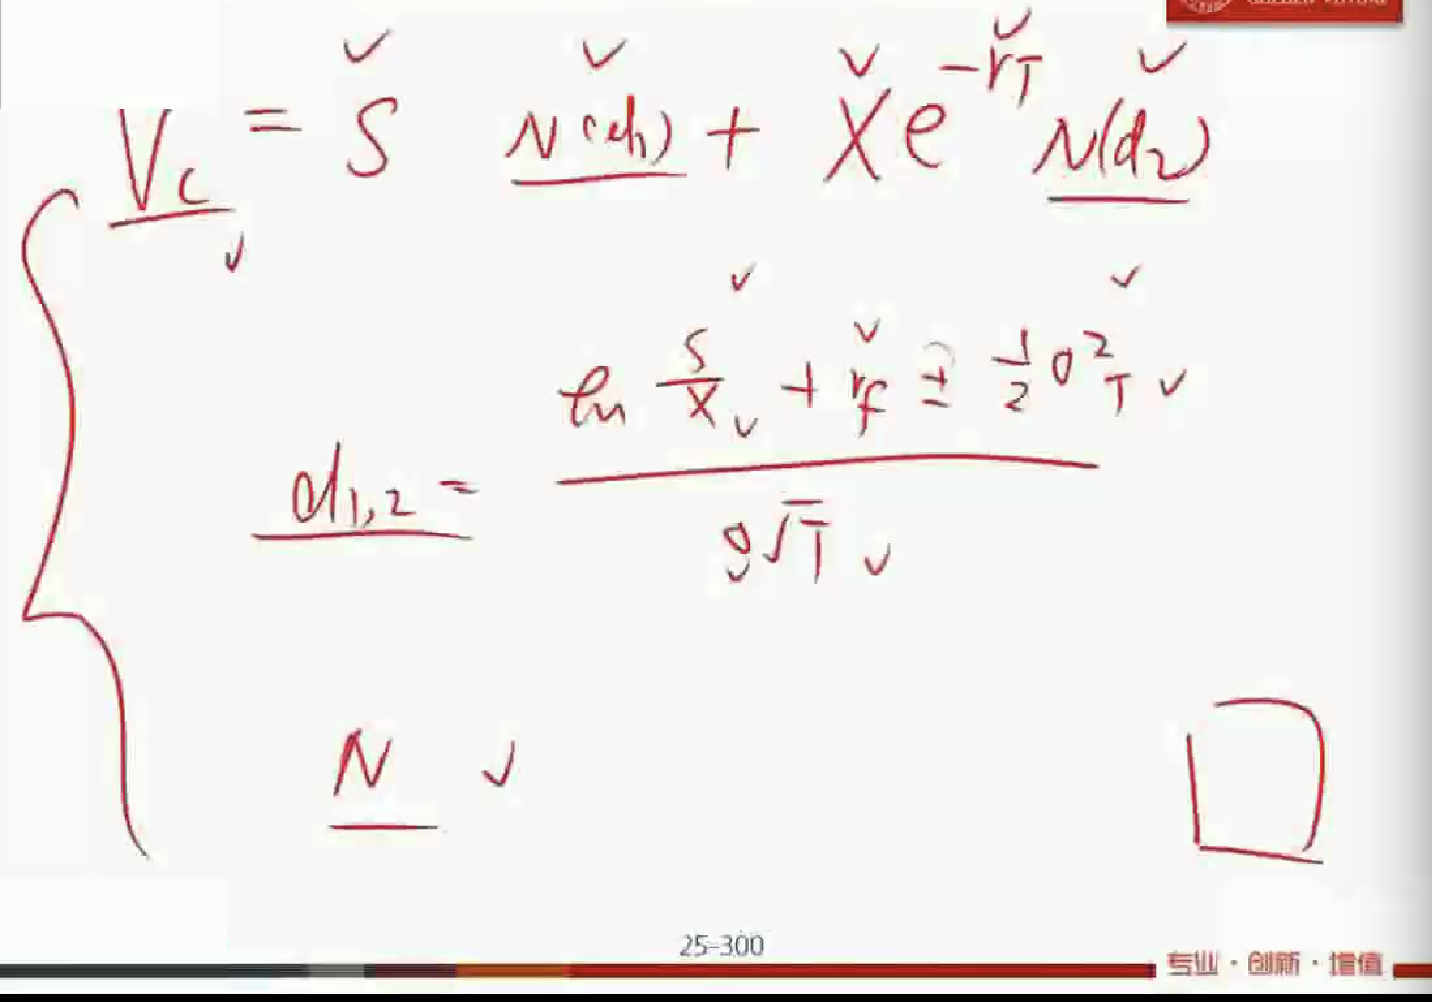 V_c = S N(d_1) + X e^{-rT} N(d_2)
d_{1,2} = \frac{\ln \frac{S}{X} + r_f ± \frac{1}{2} σ^2 T}{σ√T}
N
25-300
专业·创新·增值